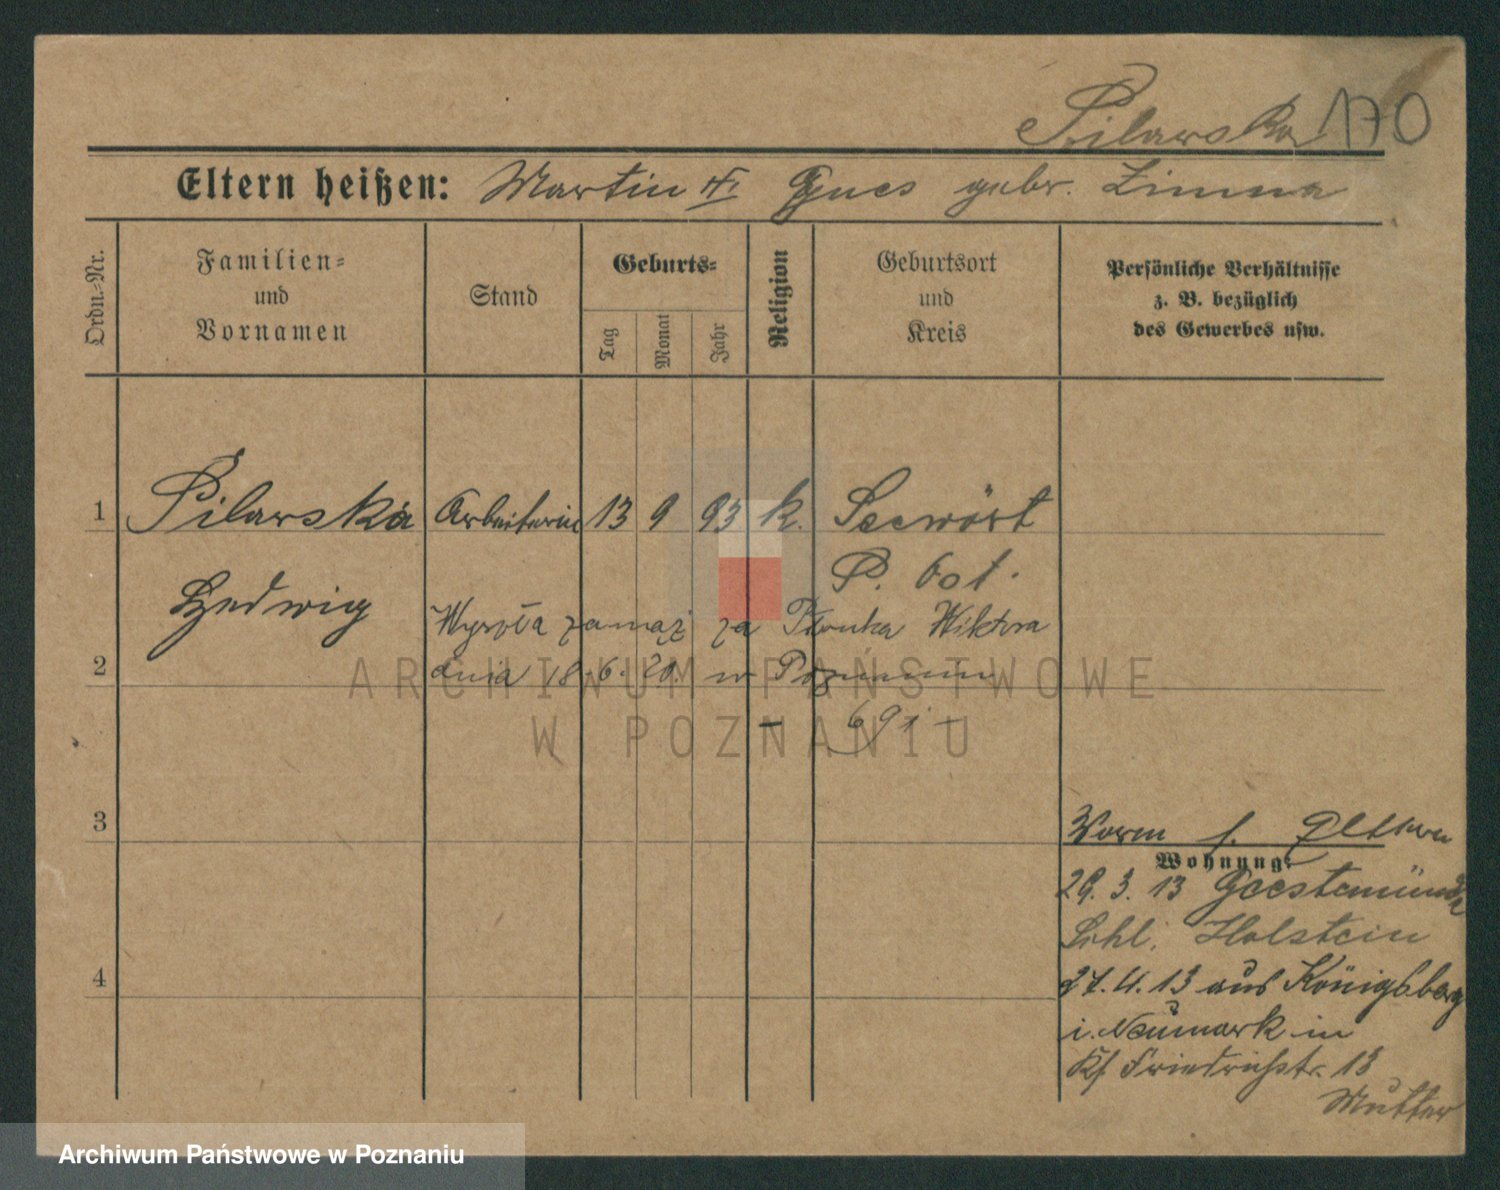 Pilarska 170
Eltern heißen: Martin u. Agnes gebr. Zimna
Ordn.-Nr.
Familien-
und
Vornamen
Stand
Geburts-
Tag
Monat
Jahr
Religion
Geburtsort
und
Kreis
Persönliche Verhältnisse
z. B. bezüglich
des Gewerbes usw.
1 Pilarska Arbeiterin 13 9 93 k. Seewörst
P. Ost.
Hedwig
Wyszła zamąż za Płonka Wiktora
2
dnia 18.6.20. w Poznaniu
3
Worm f. Eltern
Wohnung:
29. 3. 13 Geestemünde
Schl. Holstein
27. 4. 13 aus Königsberg
4
i. Neumark in
Friedrichstr. 13
Mutter
ARCHIWUM PAŃSTWOWE
W POZNANIU
Archiwum Państwowe w Poznaniu